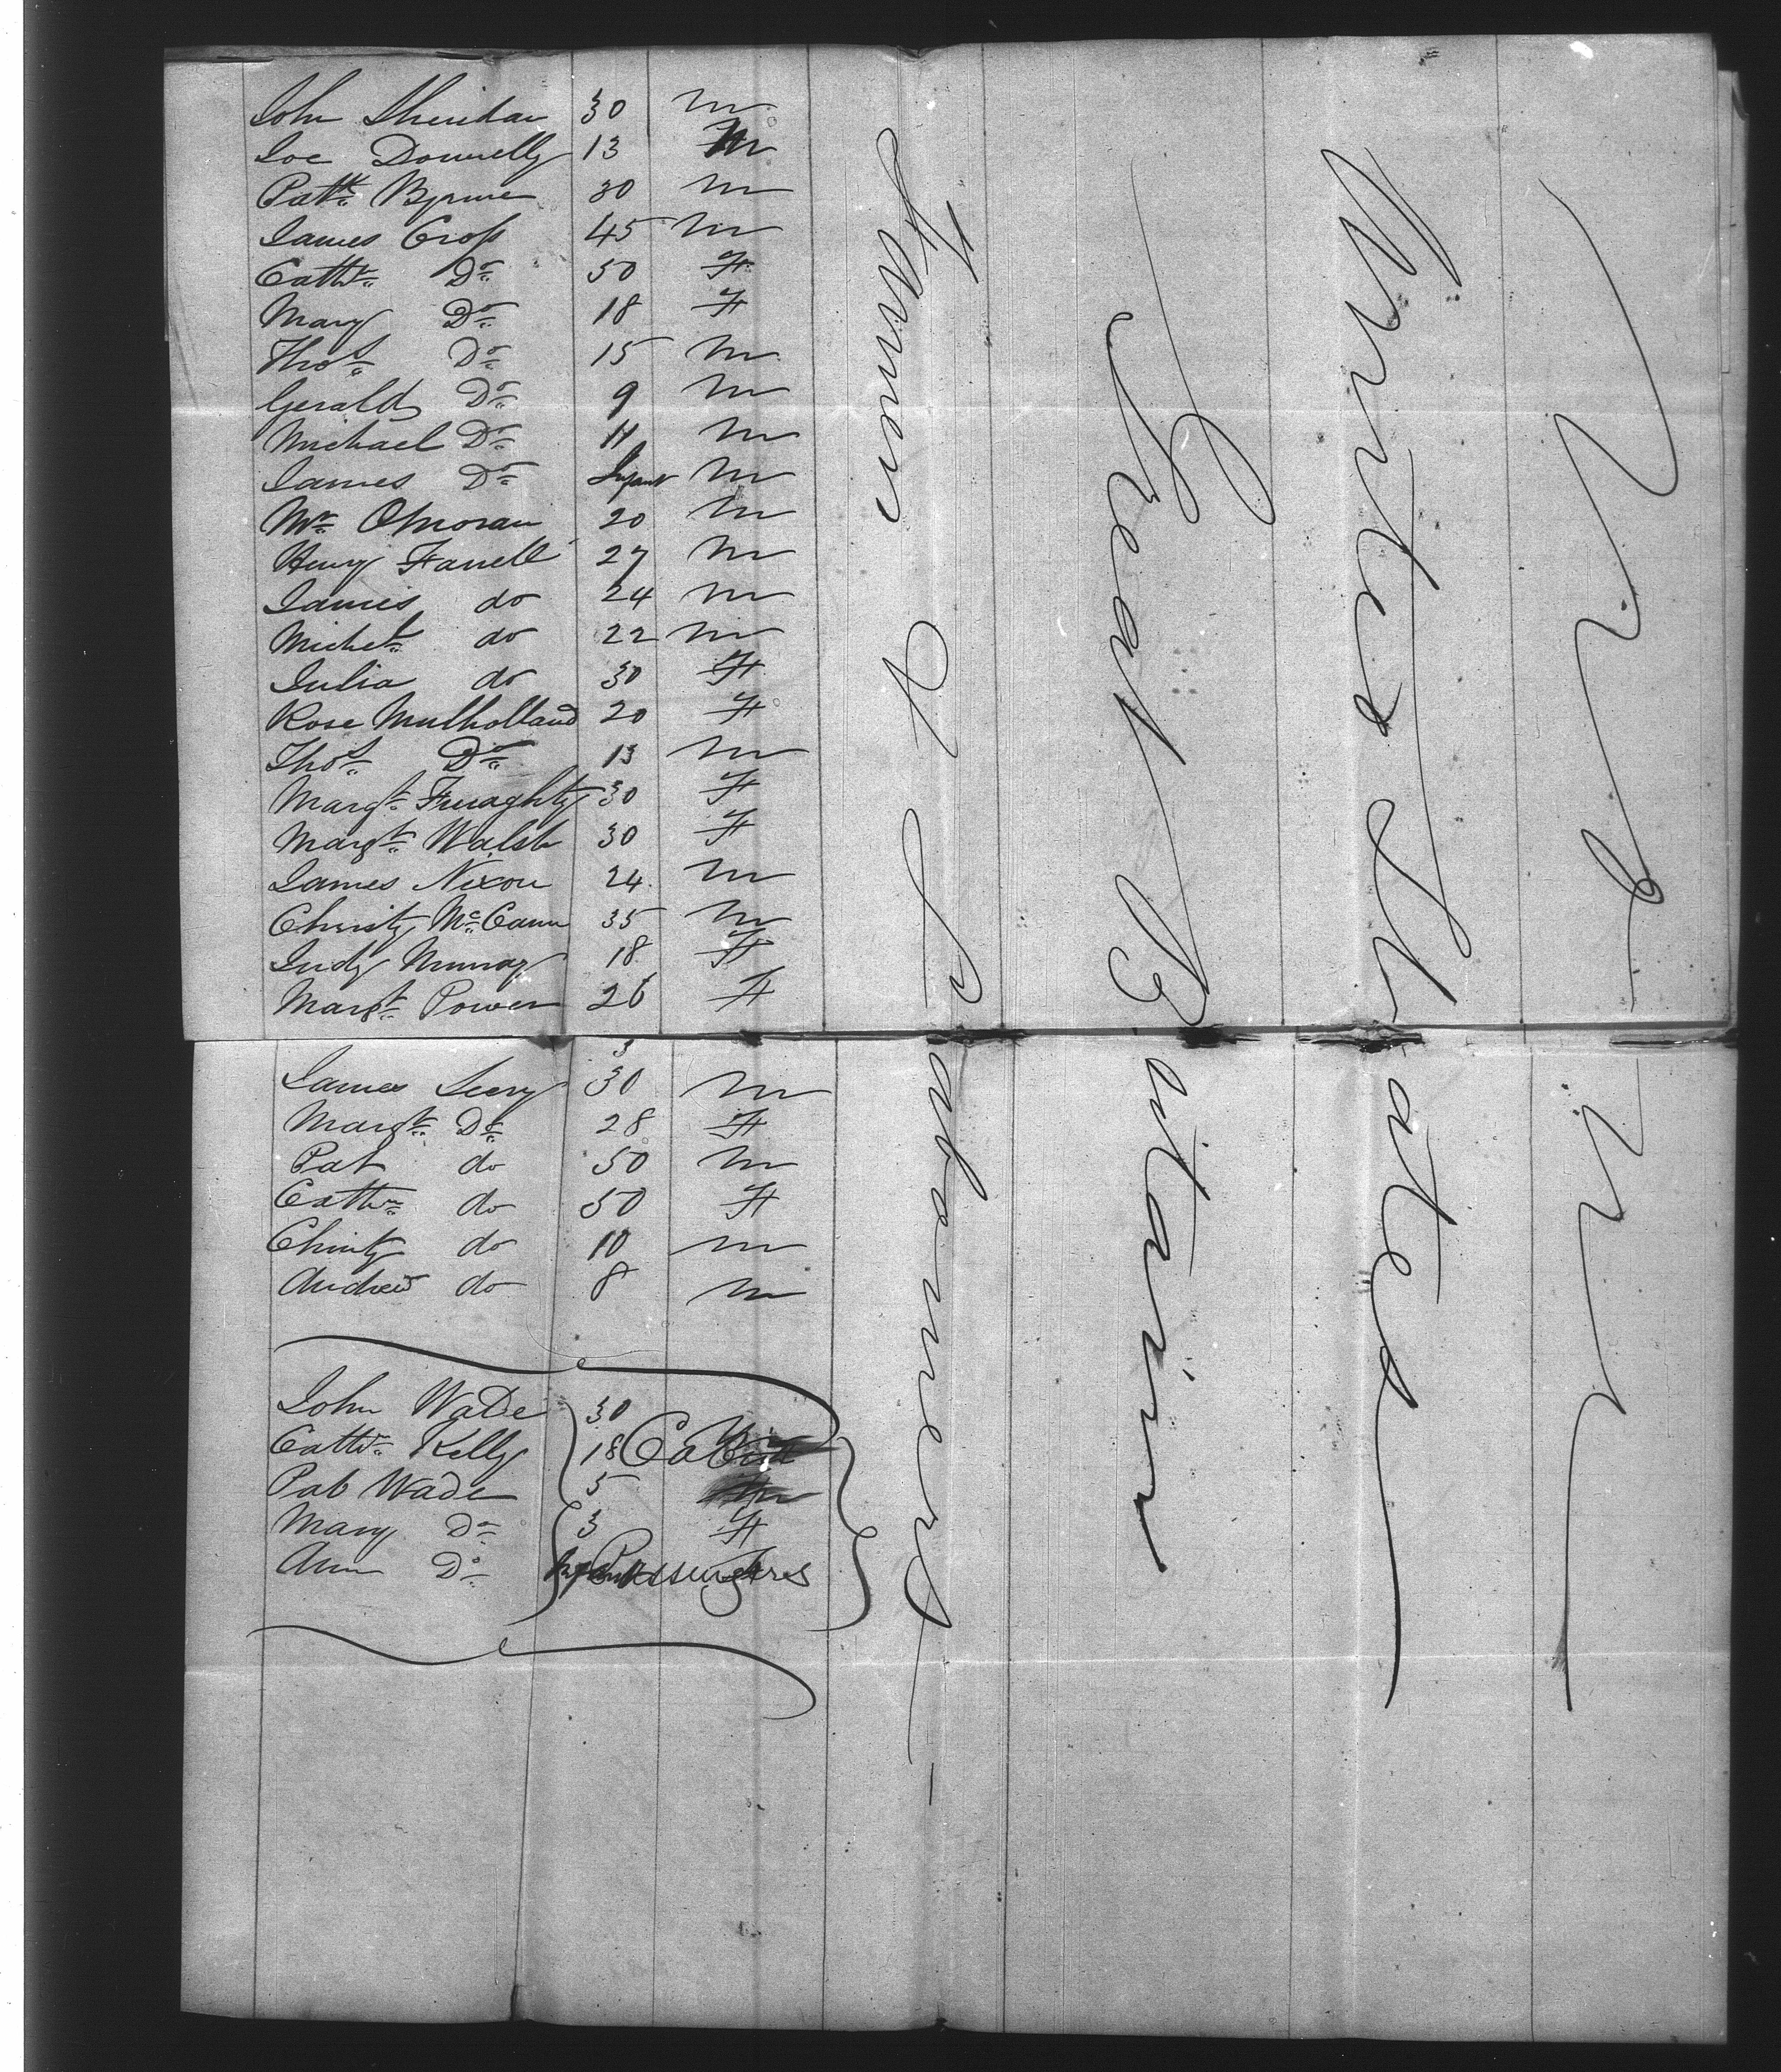 John Sheridan 30 m
Joe Donnelly 13 m
Patk. Byrne 30 m
James Cross 45 m
Cathr. Do. 50 F
Mary Do. 18 F
Thos. Do. 15 m
Gerald Do. 9 m
Michael Do. 11 m
James Do. Infant m
Mr. OMoran 20 m
Henry Farrell 27 m
James do 24 m
Michel. do 22 m
Julia do 30 F
Rose Mulholland 20 F
Thos. Do. 13 m
Margt. 30 F
Margt. Walsh 30 F
James Nixon 24 m
Christy McCann 35 m
Judy Murray 18 F
Margt. Power 26 F
3
James Leery 30 m
Margt. Do. 28 F
Pat do 50 m
Cathr. do 50 F
Christy do 10 m
Andrew do 8 m
John Wade 30
Cathr. Kelly 18 Cabin
Pat Wade 5 m
Mary Do. 3 F
Ann Do. Infant Passengers
Farmers & Labourers
Great Britain
United States